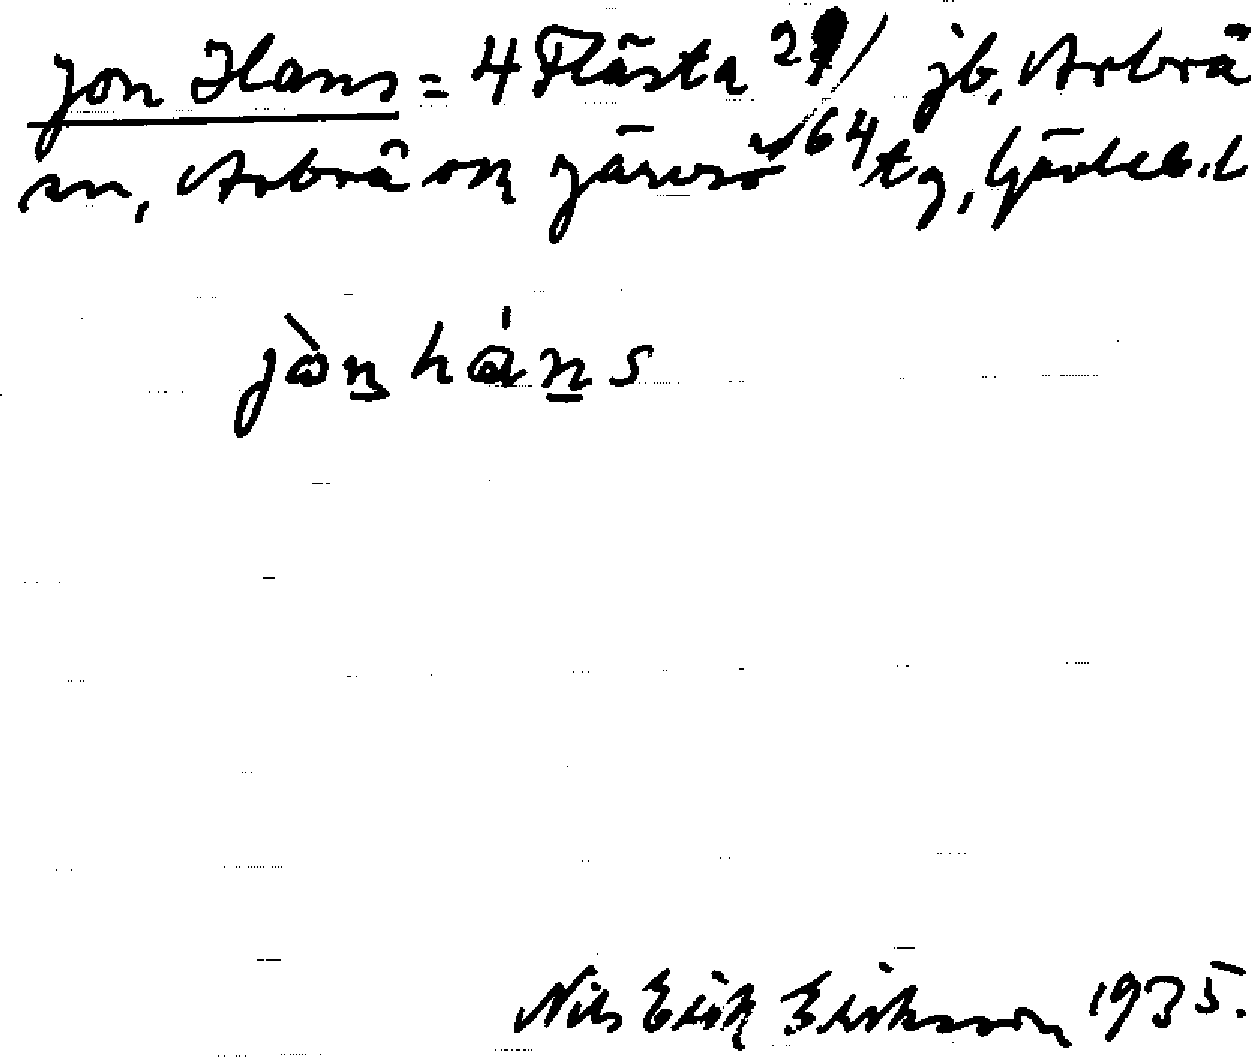 Jon Hans = 4 Flästa 29/ jb, Arbrå
sn, Arbrå ok Järvsö √64 tg, Gävleb.l
jòn háns
Nils Erik Eriksson 1935.